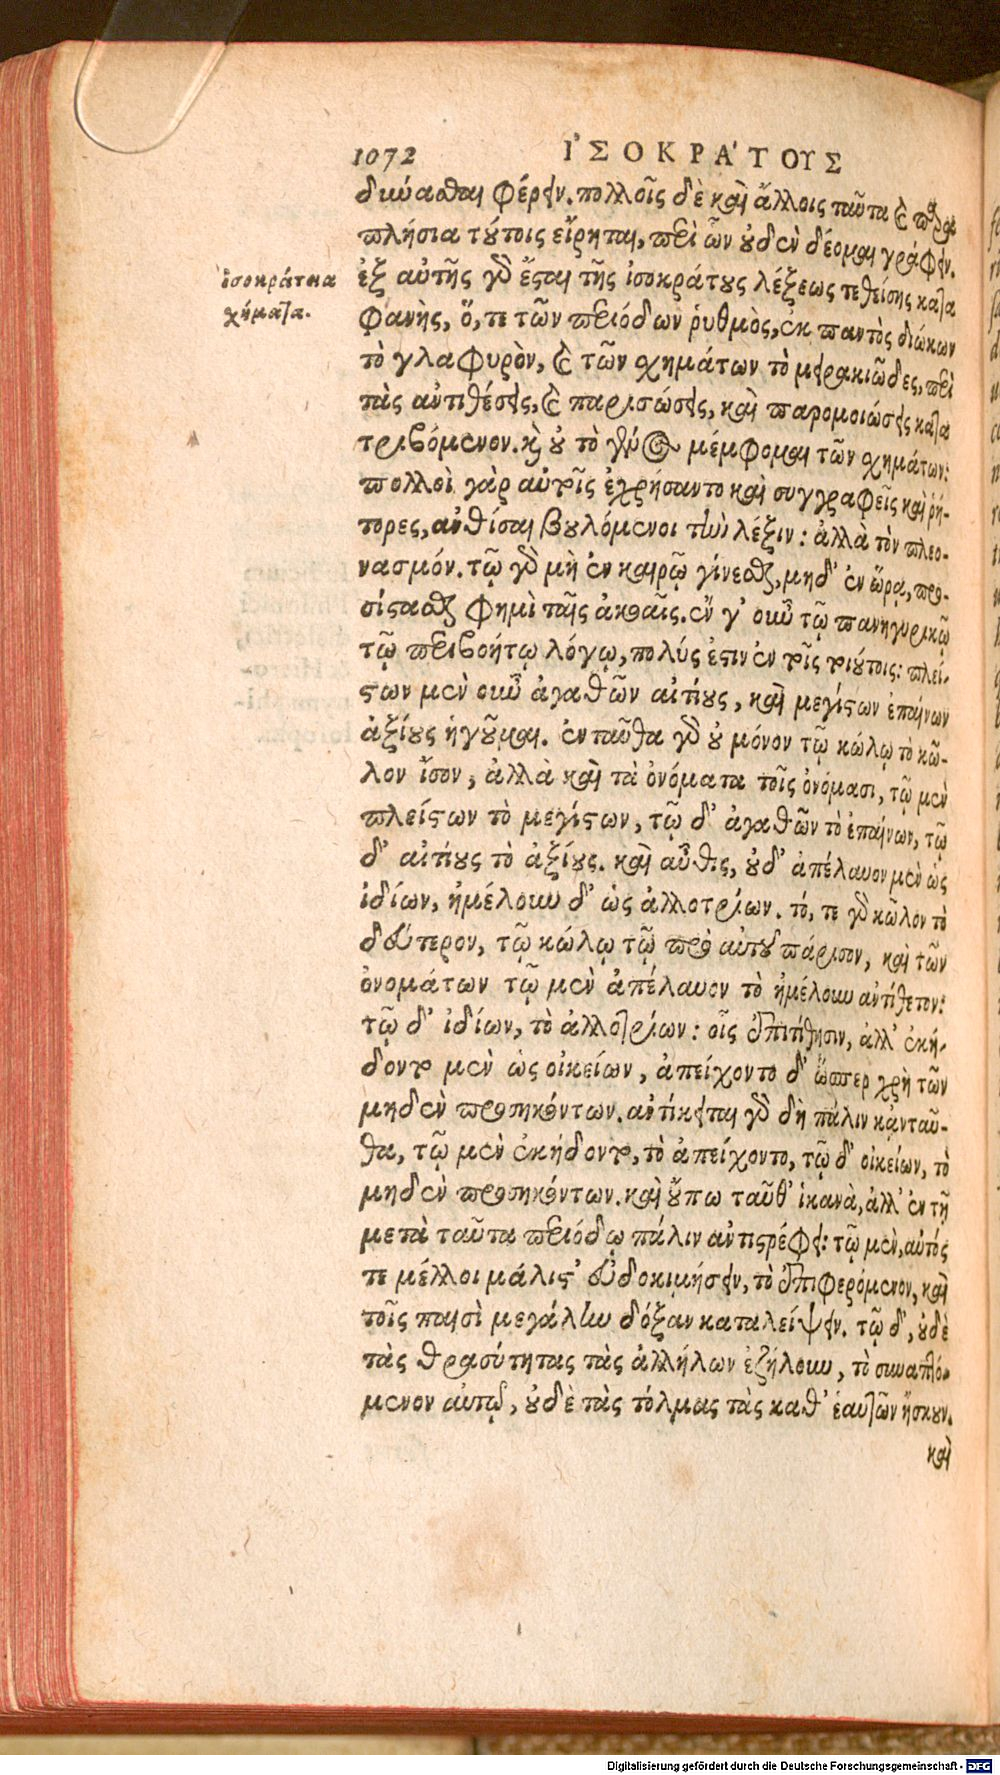 1072 ἸΣΟΚΡΆΤΟΥΣ
δεικνύασθαι φέρειν. πολλοῖς δὲ καὶ ἄλλοις ταῦτα καὶ παρα
πλήσια τούτοις εἴρηται, περὶ ὧν οὐδὲν δέομαι γράφειν.
ἰσοκράτεια
χήματα.
ἐξ αὐτῆς γὰρ ἔσται τῆς ἰσοκράτους λέξεως τεθείσης κατα
φανὴς, ὅ, τε τῶν περιόδων ῥυθμὸς, ἐκ παντὸς διώκων
τὸ γλαφυρὸν, καὶ τῶν χημάτων τὸ μειρακιῶδες, περὶ
τὰς ἀντιθέσεις, καὶ παρισώσεις, καὶ παρομοιώσεις κατα
τριβόμενον. καὶ οὐ τὸ γένος μέμφομαι τῶν χημάτων:
πολλοὶ γὰρ αὐτοῖς ἐχρήσαντο καὶ συγγραφεῖς καὶ ῥή-
τορες, ἀνθίσαι βουλόμενοι τὴν λέξιν: ἀλλὰ τὸν πλεο-
νασμόν. τῷ γὰρ μὴ ἐν καιρῷ γίνεσθαι, μηδ' ἐν ὥρᾳ, προ-
σίστασθαι φημὶ ταῖς ἀκοαῖς. ἐν γ' οὖν τῷ πανηγυρικῷ
τῷ περιβοήτῳ λόγῳ, πολύς ἐστιν ἐν τοῖς τοιούτοις: πλεί-
στων μὲν οὖν ἀγαθῶν αἰτίους, καὶ μεγίστων ἐπαίνων
ἀξίους ἡγοῦμαι. ἐνταῦθα γὰρ οὐ μόνον τῷ κώλῳ τὸ κῶ-
λον ἴσον, ἀλλὰ καὶ τὰ ὀνόματα τοῖς ὀνόμασι, τῷ μὲν
πλείστων τὸ μεγίστων, τῷ δ' ἀγαθῶν τὸ ἐπαίνων, τῷ
δ' αἰτίους τὸ ἀξίους. καὶ αὖθις, οὐδ' ἀπέλαυον μὲν ὡς
ἰδίων, ἠμέλουν δ' ὡς ἀλλοτρίων. τό, τε γὰρ κῶλον τὸ
δεύτερον, τῷ κώλῳ τῷ πρὸ αὐτοῦ πάρισον, καὶ τῶν
ὀνομάτων τῷ μὲν ἀπέλαυον τὸ ἠμέλουν ἀντίθετον:
τῷ δ' ἰδίων, τὸ ἀλλοτρίων: οἷς ἐπιτίθησιν, ἀλλ' ἐκή-
δοντο μὲν ὡς οἰκείων, ἀπείχοντο δ' ὥσπερ χρὴ τῶν
μηδὲν προσηκόντων. ἀντίκειται γὰρ δὴ πάλιν κἀνταῦ-
θα, τῷ μὲν ἐκήδοντο, τὸ ἀπείχοντο, τῷ δ' οἰκείων, τὸ
μηδὲν προσηκόντων. καὶ οὔπω ταῦθ' ἱκανὰ, ἀλλ' ἐν τῇ
μετὰ ταῦτα περιόδῳ πάλιν ἀντιστρέφει: τῷ μὲν, αὐτός
τε μέλλοι μάλιστ' εὐδοκιμήσειν, τὸ ἐπιφερόμενον, καὶ
τοῖς παισὶ μεγάλην δόξαν καταλείψειν. τῷ δ', οὐδὲ
τὰς θρασύτητας τὰς ἀλλήλων ἐζήλουν, τὸ συναπτό-
μενον αὐτῷ, οὐδὲ τὰς τόλμας τὰς καθ' ἑαυτῶν ἤσκουν.
καὶ
Digitalisierung gefördert durch die Deutsche Forschungsgemeinschaft - DFG